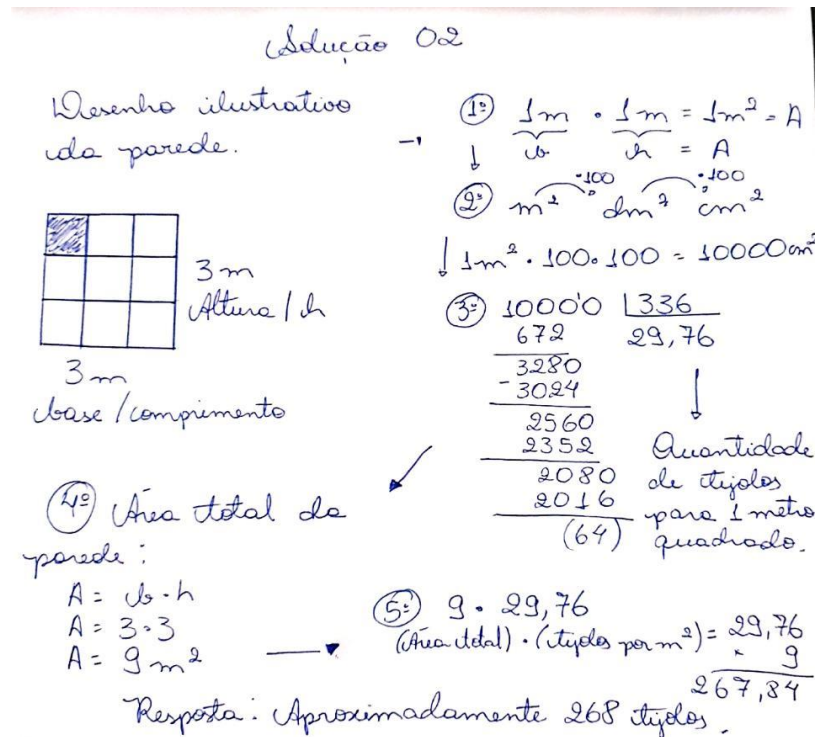 Solução 02
Desenho ilustrativo
da parede.
3 m
Altura / h
3 m
base / comprimento
→ 1º 1m · 1m = 1m² = A
b h = A
·100 ·100
2º m² dm² cm²
↓ 1m² · 100 · 100 = 10000 cm²
3º 10000 336
672 29,76
3280
- 3024
2560
2352
2080
2016
(64)
Quantidade
de tijolos
para 1 metro
quadrado.
4º Área total da
parede:
A = b · h
A = 3 · 3
A = 9 m²
5º 9 · 29,76
(Área total) · (tijolos por m²) = 29,76
× 9
267,84
Resposta: Aproximadamente 268 tijolos.